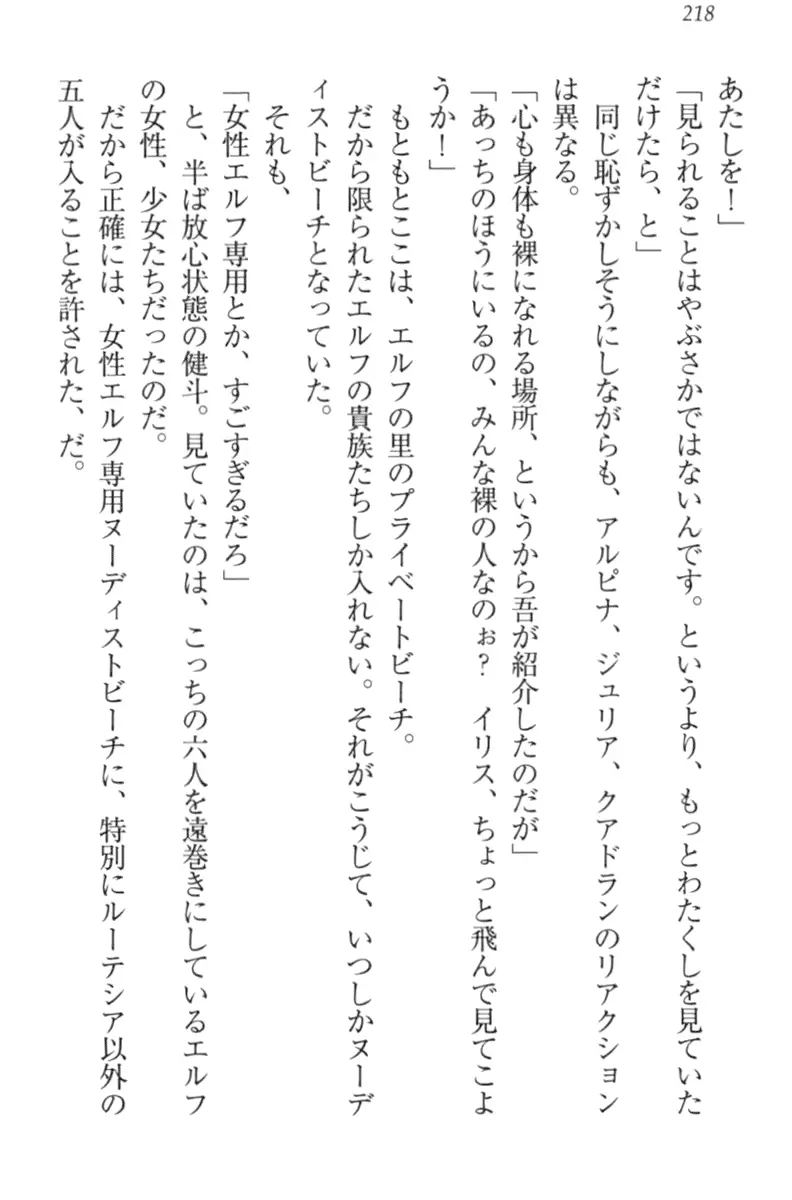 218
あたしを！」
「見られることはやぶさかではないんです。というより、もっとわたくしを見ていた
だけたら、と」
同じ恥ずかしそうにしながらも、アルピナ、ジュリア、クアドランのリアクション
は異なる。
「心も身体も裸になれる場所、というから吾が紹介したのだが」
「あっちのほうにいるの、みんな裸の人なのぉ？　イリス、ちょっと飛んで見てこよ
うか！」
もともとここは、エルフの里のプライベートビーチ。
だから限られたエルフの貴族たちしか入れない。それがこうじて、いつしかヌーデ
ィストビーチとなっていた。
それも、
「女性エルフ専用とか、すごすぎるだろ」
と、半ば放心状態の健斗。見ていたのは、こっちの六人を遠巻きにしているエルフ
の女性、少女たちだったのだ。
だから正確には、女性エルフ専用ヌーディストビーチに、特別にルーテシア以外の
五人が入ることを許された、だ。